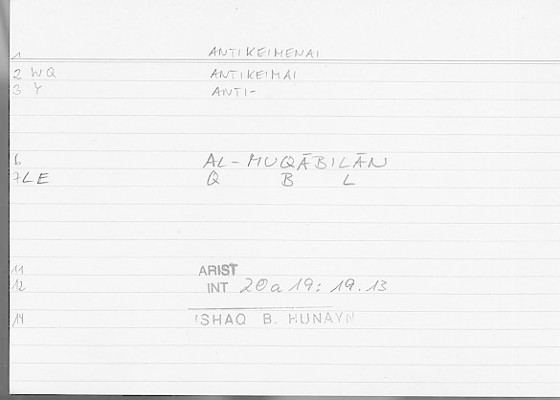 1 ANTIKEIMENAI
2 WQ ANTIKEIMAI
3 Y ANTI-
6 AL-MUQĀBILĀN
7LE Q B L
11 ARIST
12 INT 20a19: 19.13
14 ISHAQ B. HUNAYN